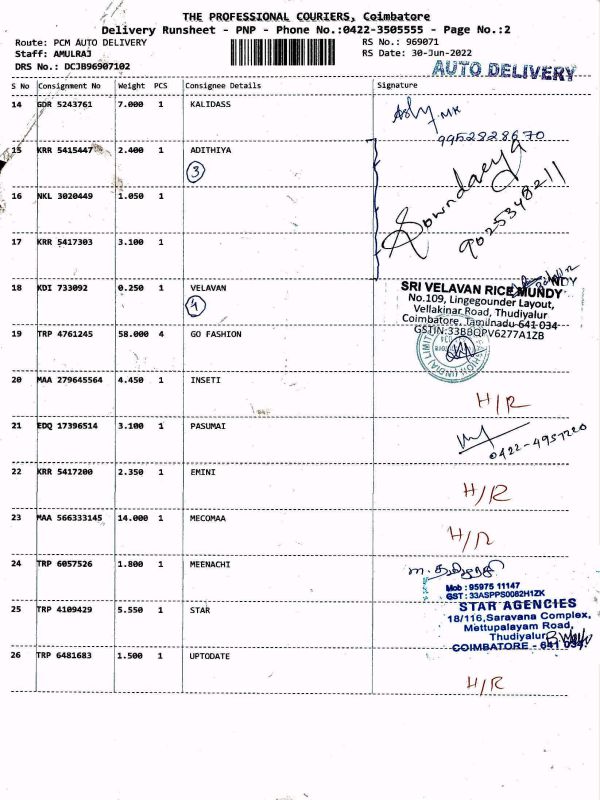 THE PROFESSIONAL COURIERS, Coimbatore
Delivery Runsheet - PNP - Phone No.:0422-3505555 - Page No.:2
Route: PCM AUTO DELIVERY
RS No.: 969071
Staff: AMULRAJ
RS Date: 30-Jun-2022
DRS No.: DCJB96907102
AUTO DELIVERY
S No Consignment No Weight PCS Consignee Details Signature
14 GDR 5243761 7.000 1 KALIDASS
9952828670
15 KRR 5415447 2.400 1 ADITHIYA
3
Sowndarya
9025348211
16 NKL 3020449 1.050 1
17 KRR 5417303 3.100 1
18 KDI 733092 0.250 1 VELAVAN
4
SRI VELAVAN RICE MUNDY
No.109, Lingegounder Layout,
Vellakinar Road, Thudiyalur
Coimbatore, Tamilnadu-641 034
GSTIN:33BBQPV6277A1ZB
19 TRP 4761245 58.000 4 GO FASHION
20 MAA 279645564 4.450 1 INSETI
H/R
21 EDQ 17396514 3.100 1 PASUMAI
22 KRR 5417200 2.350 1 EMINI
H/R
23 MAA 566333145 14.000 1 MECOMAA
H/R
24 TRP 6057526 1.800 1 MEENACHI
25 TRP 4109429 5.550 1 STAR
Mob : 95975 11147
GST : 33ASPPS0082H1ZK
STAR AGENCIES
18/116,Saravana Complex,
Mettupalayam Road,
Thudiyalur
COIMBATORE - 641 034.
26 TRP 6481683 1.500 1 UPTODATE
H/R